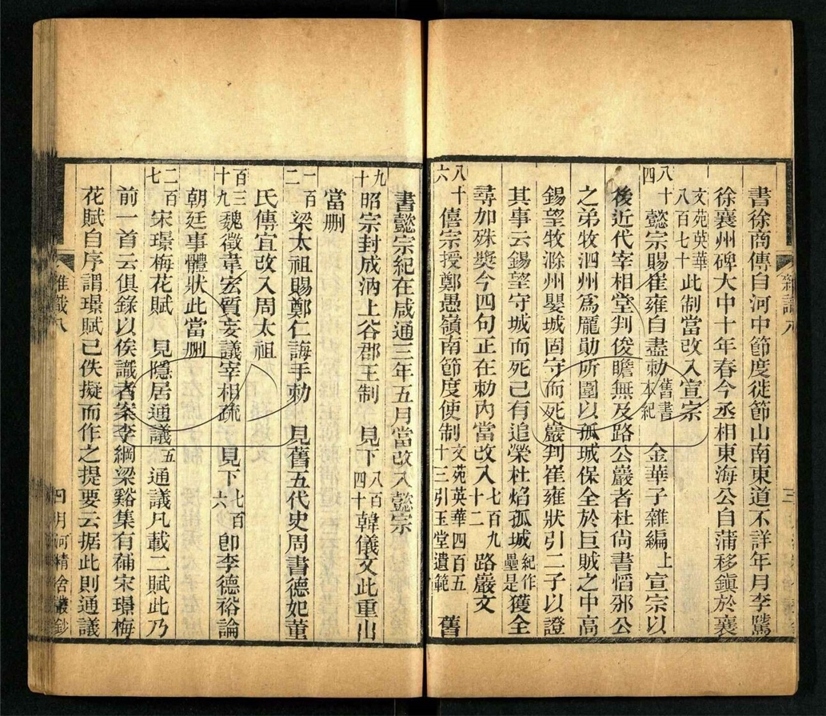 書徐商傳自河中節度徙節山南東道不詳年月李騭
徐襄州碑大中十年春今丞相東海公自蒲移鎮於襄
文苑英華八百七十此制當改入宣宗
八十四懿宗賜崔雍自盡勅舊書本紀 金華子雜編上宣宗以
後近代宰相堂判俊贍無及路公巖者杜尚書慆邠公
之弟牧泗州爲龎勛所圍以孤城保全於巨賊之中高
錫望牧滁州嬰城固守而死巖判崔雍狀引二子以證
其事云錫望守城而死已有追榮杜焰孤城紀作壘是獲全
尋加殊奬今四句正在勅內當改入七百九十二路巖文
八十六僖宗授鄭愚嶺南節度使制文苑英華四百五十三引玉堂遺範 舊
書懿宗紀在咸通三年五月當改入懿宗
九十昭宗封成汭上谷郡王制 見下八百四十韓儀文此重出
當删
一百二梁太祖賜鄭仁誨手勅 見舊五代史周書德妃董
氏傳宜改入周太祖
百三十九魏徵韋宏質妄議宰相疏 見下七百六卽李德裕論
朝廷事體狀此當删
二百七宋璟梅花賦 見隱居通議五通議凡載二賦此乃
前一首云俱錄以俟識者案李綱梁谿集有補宋璟梅
花賦自序謂璟賦已佚擬而作之提要云据此則通議
雜識八
四
月河精舍叢鈔